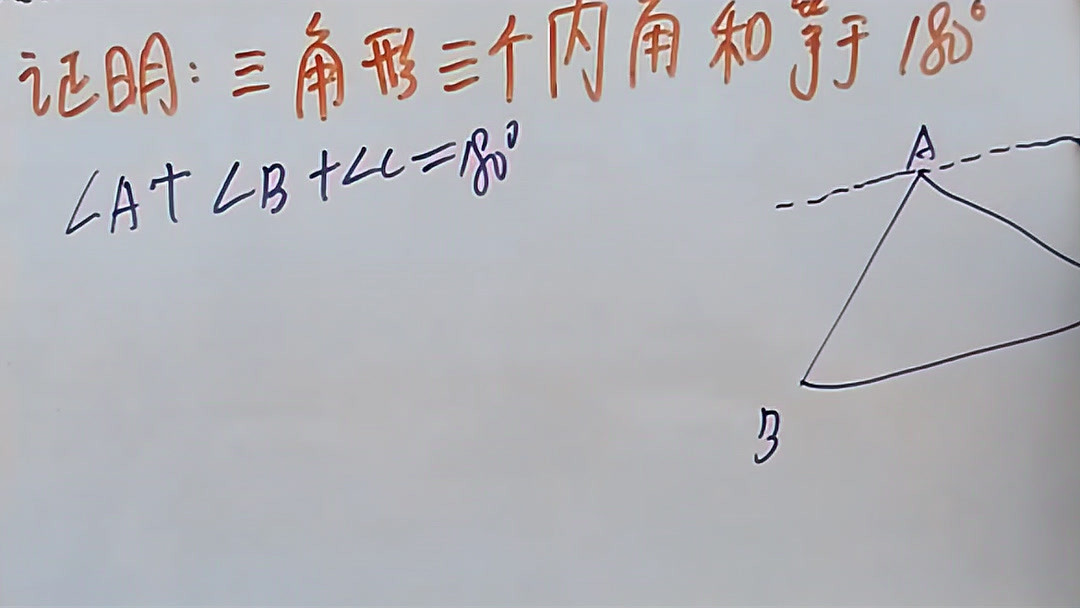 证明:三角形三个内角和等于180°
∠A+∠B+∠C=180°
A
B